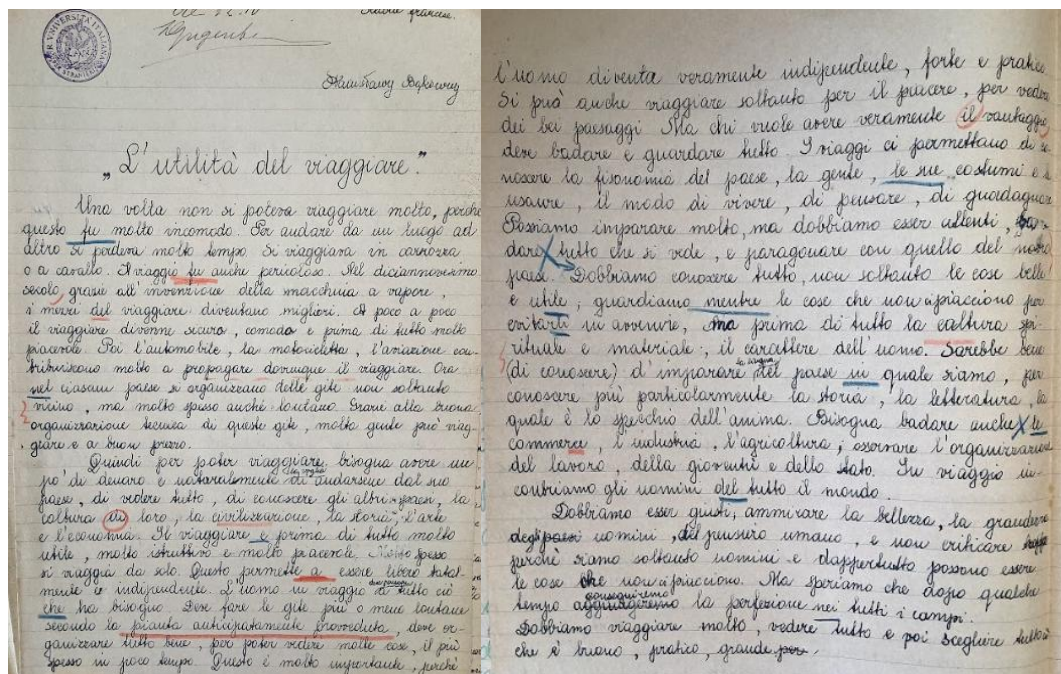 R. UNIVERSITÀ ITALIANA
PER STRANIERI
Stanisławy
„L'utilità del viaggiare.”
Una volta non si poteva viaggiare molto, perchè
questo fu molto incomodo. Per andare da un luogo ad
altro si perdeva molto tempo. Si viaggiava in carrozza
o a cavallo. Il viaggio fu anche pericoloso. Nel diciannovesimo
secolo, grazie all'invenzione della macchina a vapore,
i mezzi del viaggiare diventano migliori. A poco a poco
il viaggiare divenne sicuro, comodo e prima di tutto molto
piacevole. Poi l'automobile, la motocicletta, l'aviazione con-
tribuiscono molto a propagare dovunque il viaggiare. Ora
nel ciascun paese si organizzano delle gite non soltanto
vicino, ma molto spesso anche lontano. Grazie alla buona
organizzazione tecnica di queste gite, molta gente può viag-
giare e a buon prezzo.
Quindi per poter viaggiare bisogna avere un
po' di denaro e naturalmente di andarsene dal suo
paese, di vedere tutto, di conoscere gli altri paesi, la
coltura di loro, la civilizzazione, la storia, l'arte
e l'economia. Il viaggiare e prima di tutto molto
utile, molto istruttivo e molto piacevole. spesso
si viaggia da solo. Questo permette a essere libero total-
mente e indipendente. L'uomo in viaggio a tutto ciò
che ha bisogno. Deve fare le gite più o meno lontane
secondo la pianta anticipatamente provveduta, deve or-
ganizzare tutto bene, per poter vedere molte cose, il più
spesso in poco tempo. Questo è molto importante, perchè
l'uomo diventa veramente indipendente, forte e pratico.
Si può anche viaggiare soltanto per il piacere, per vedere
dei bei paesaggi. Ma chi vuole avere veramente il vantaggio
deve badare e guardare tutto. I viaggi ci permettano di co-
noscere la fisonomia del paese, la gente, le sue costumi e
usanze, il modo di vivere, di pensare, di guadagnare
Possiamo imparare molto, ma dobbiamo esser attenti,
dare tutto che si vede, e paragonare con quello del nostro
paese. Dobbiamo conoscere tutto, non soltanto le cose belle
e utile, guardiamo mentre le cose che non ci piacciono per
evitarli in avvenire, ma prima di tutto la coltura spi-
rituale e materiale, il carattere dell'uomo. Sarebbe bene
(di conoscere) d'imparare la lingua del paese in quale siamo, per
conoscere più particolarmente la storia, la letteratura, la
quale è lo specchio dell'anima. Bisogna badare anche le
commerci, l'industria, l'agricoltura, osservare l'organizzazione
del lavoro, della gioventù e dello stato. In viaggio in-
contriamo gli uomini del tutto il mondo.
Dobbiamo esser giusti, ammirare la bellezza, la grandezza
degli uomini, del pensiero umano, e non criticare
perchè siamo soltanto uomini e dappertutto possono essere
le cose che non ci piacciono. Ma speriamo che dopo qualche
tempo conseguiremo la perfezione nei tutti i campi.
Dobbiamo viaggiare molto, vedere tutto e poi scegliere tutto
che è buono, pratico, grande.